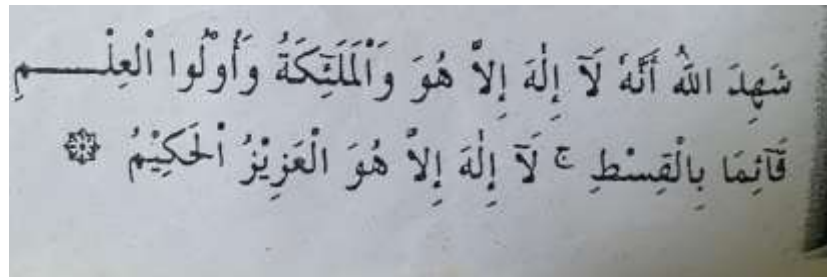 شَهِدَ اللهُ أَنَّهٗ لَآ إِلٰهَ إِلاَّ هُوَ وَالْمَلَٓئِكَةُ وَأُوْلُوا الْعِلْـــمِ
قَآئِمًا بِالْقِسْطِ ۚ لَآ إِلٰهَ إِلاَّ هُوَ الْعَزِيْزُ الْحَكِيْمُ ۞